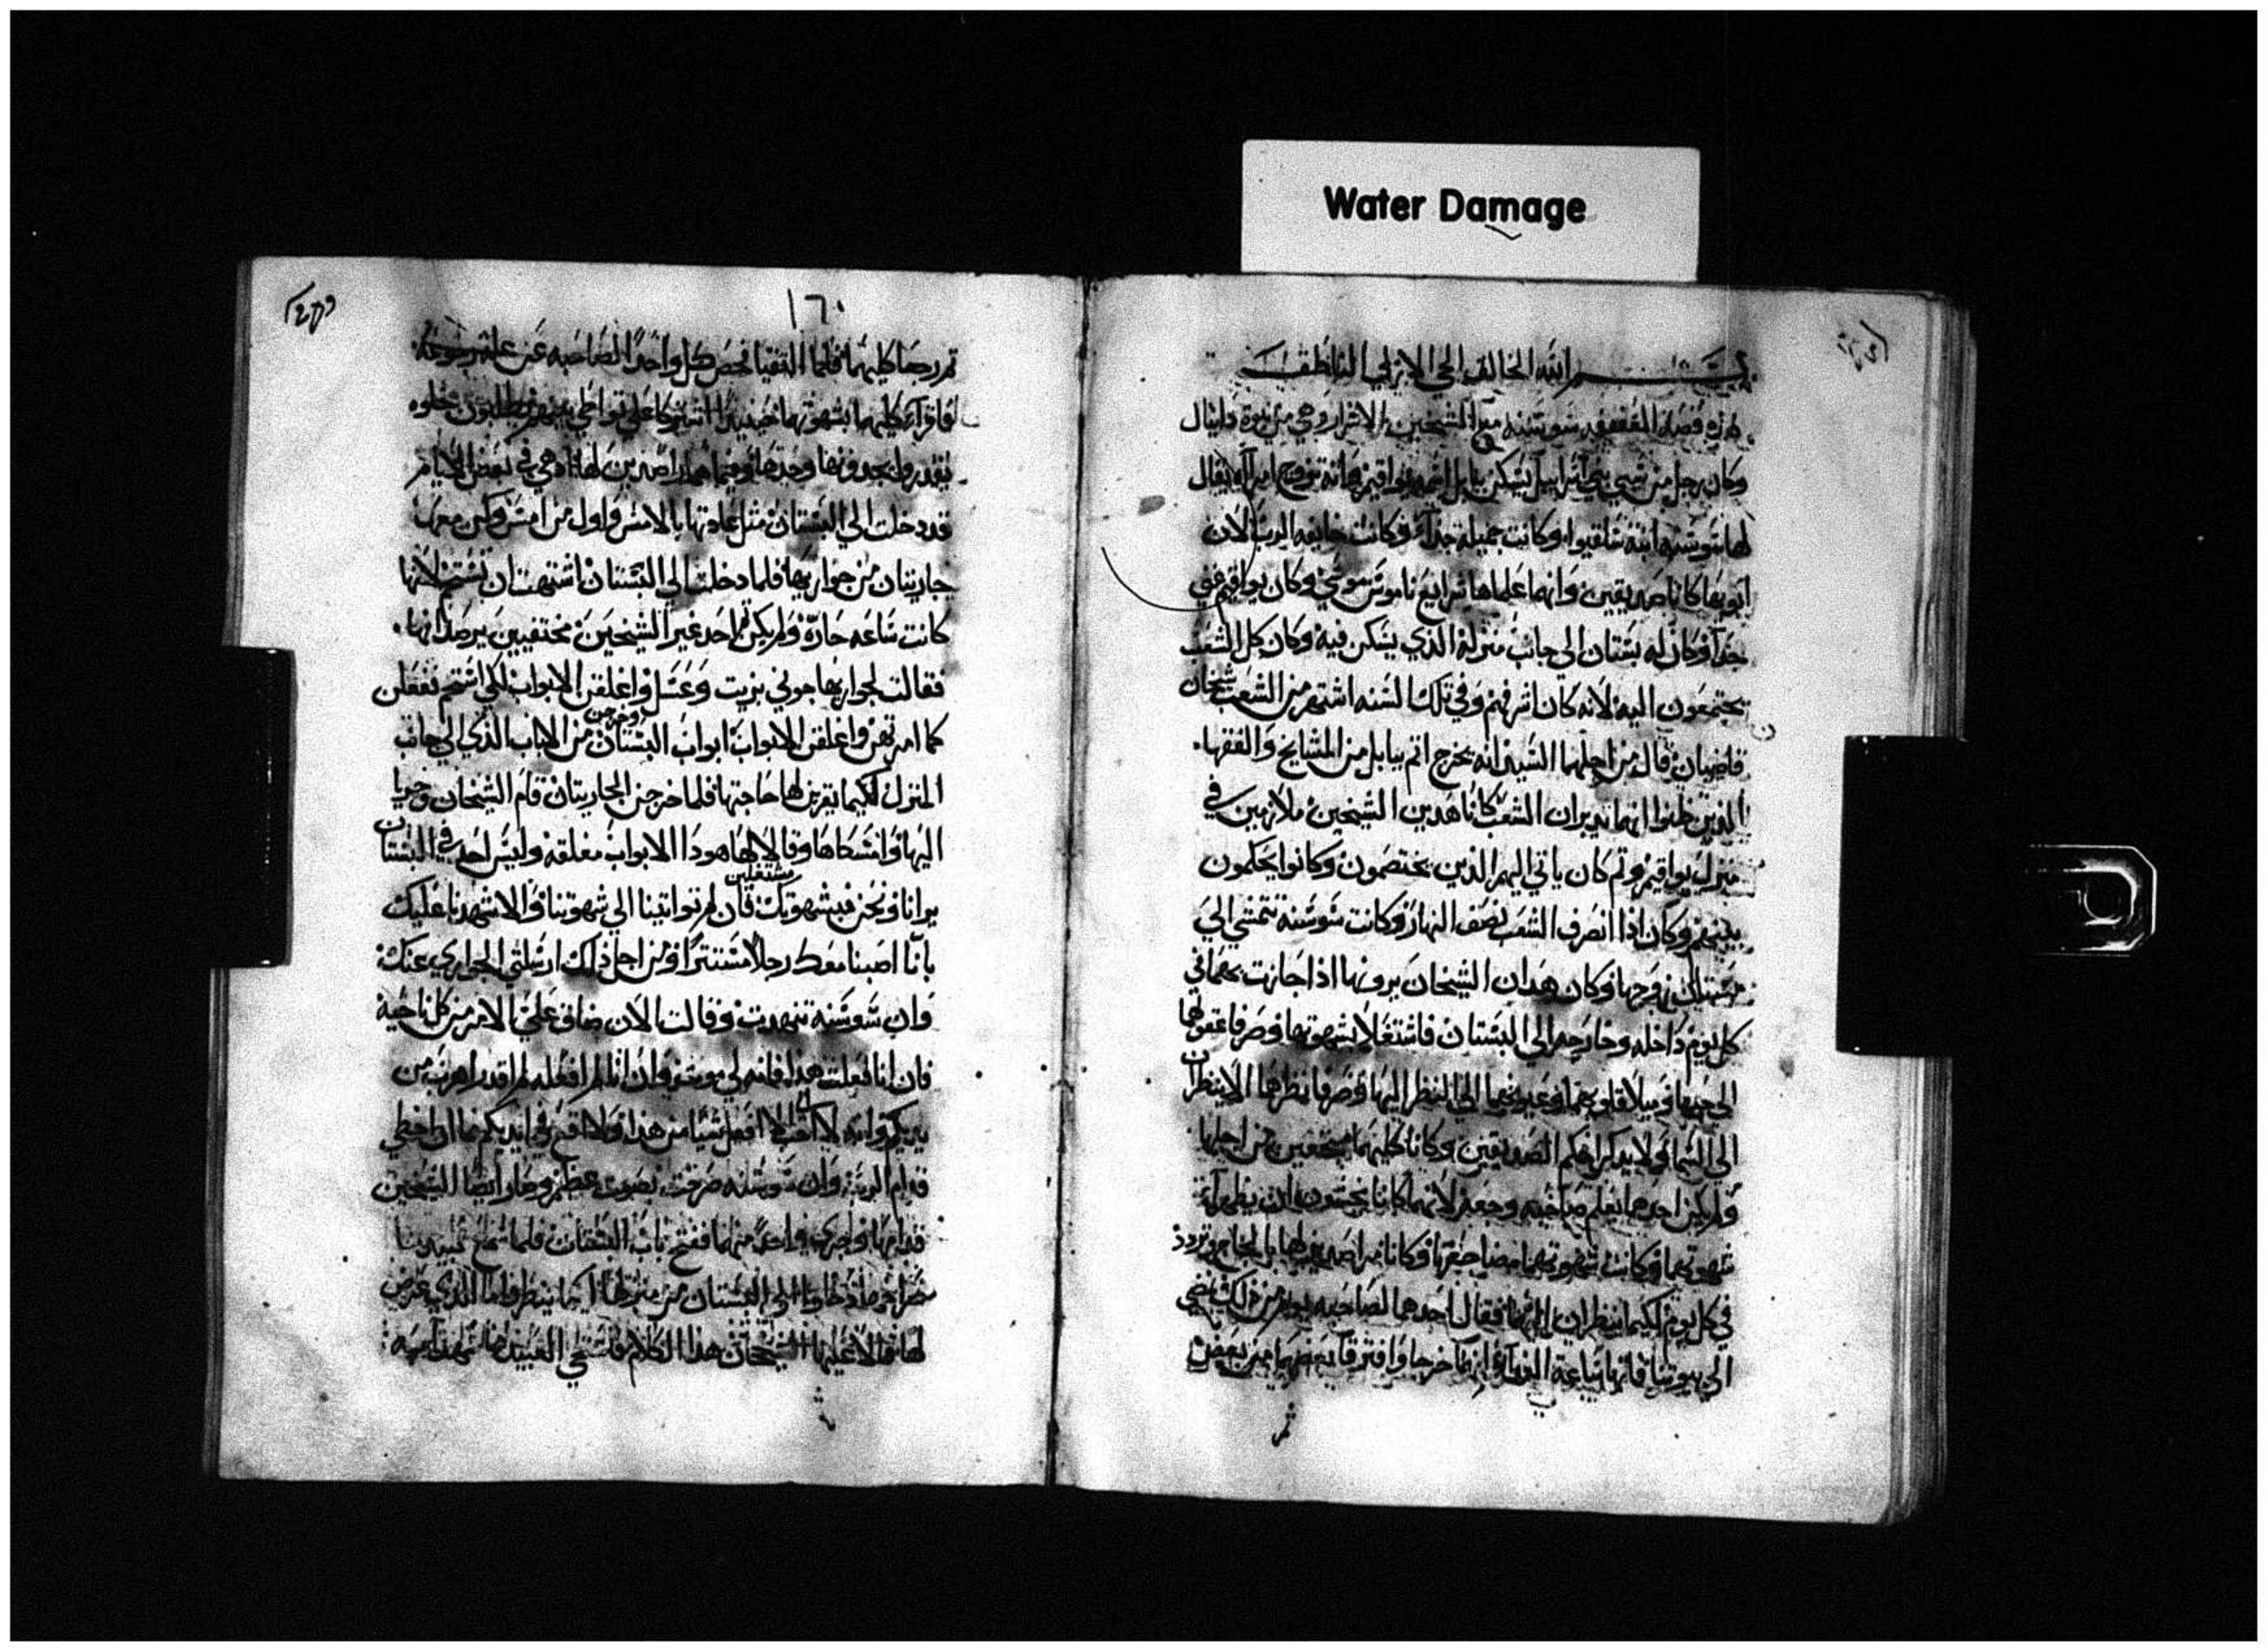 Water Damage
بسم الله الخالق الحي الازلي الناطق
هذه قصة العفيفه شوشنه مع الشيخين الاشرار وهي من نبوة دانيال
وكان رجل من بني اسراييل يسكن بابل اسمه يواقيم وانه تزوج امراه يقال
لها شوشنه ابنة خلقيوا وكانت جميله جداً وكانت خايفه الرب لان
ابويها كانا صديقين وانهما علماها شرايع ناموس موسي وكان يواقيم غني
جداً وكان له بستان الي جانب منزله الذي يسكن فيه وكان كل الشعب
يجتمعون اليه لانه كان اشرفهم وفي تلك السنه اشتهر من الشعب شيخان
قاضيان قال من اجلهما السيد انه يخرج اثم ببابل من المشايخ والفقها
الذين ظنوا انهما يدبران الشعب كانا هدين الشيخين ملازمين في
منزل يواقيم وثم كان ياتي اليهم الذين يختصمون وكانوا يحكمون
بينهم وكان اذا انصرف الشعب نصف النهار وكانت شوشنه تتمشي الي
بستان زوجها وكان هدان الشيخان يرونها اذا جازت بهما في
كل يوم داخله وخارجه الي البستان فاشتغلا بشهوتها وصرفا عقولهما
الي حبها وميلا قلوبهما وعيونهما الي النظر اليها وصرفا نظرها الا ينظران
الي السما ولا يدكرا حكم الصديقين وكانا كليهما من اجلها
ولم يكن احدهما يعلم صاحبه وجعه لانهما كانا يختشون ان يظهرا
شهوتهما وكانت شهوتهما مضاجعتها وكانا يراصدونها
في كل يوم لكيما ينظران اليها فقال احدهما لصاحبه يوم من ذلك نمضي
الي بيوتنا فانها ساعة الغدا وانهما خرجا وافترقا بعضهما من بعض
ثم
١٦٠
ثم رجعا كليهما فلما التقيا فحص كل واحداً لصاحبه عن علة رجوعه
فاقرا كليهما بشهوتهما حينيذ اشتركا علي تواطي بينهم ويطلبون خلوه
يقدروا يجدونها وحدها وفيما هما راصدين لها اذ هي في بعض الايام
قد دخلت الي البستان مثل عادتها بالامس واول من امس وكن معها
جاريتان من جواريها فلما دخلت الي البستان اشتهت ان تستحم لانها
كانت ساعه حاره ولم يكن ثم احد غير الشيخين مختفيين يرصدانها
فقالت لجواريها جوني بزيت وعسل واغلقن الابواب لكي استحم ففعلن
كما امرتهن واغلقن الابواب ابواب البستان وخرجن من الباب الذي الي جانب
المنزل لكيما يقربن لها حاجتها فلما خرجن الجاريتان قام الشيخان وجريا
اليها وامسكاها وقالا لها هودا الابواب مغلقه وليس احد في البستان
يرانا ونحن مشتغلين فيشهوتك فان لم تواتينا الي شهوتنا والا شهدنا عليك
بانا اصبنا معك رجلا مستتراً ومن اجل ذلك ارسلتي الجواري عنك
وان شوشنه تنهدت وقالت الان ضاق علي الامر من كل ناحيه
فان انا فعلت هدا فانه لي موت وان انا لم افعله لم اقدر اهرب من
يديكم وانه لا افعل شيا من هدا ولا اقع في ايديكم اخطي
قدام الرب وان شوشنه صرخت بصوت عظيم وصار ايضا الشيخين
قدامها وجري واحد منهما ففتح باب البستان فلما سمع عبيدنا
صراخها دخلوا الي البستان من منزلها كيما ينظروا ما الذي عرض
لها فقالا عليها الشيخان هذا الكلام فاستحي العبيد